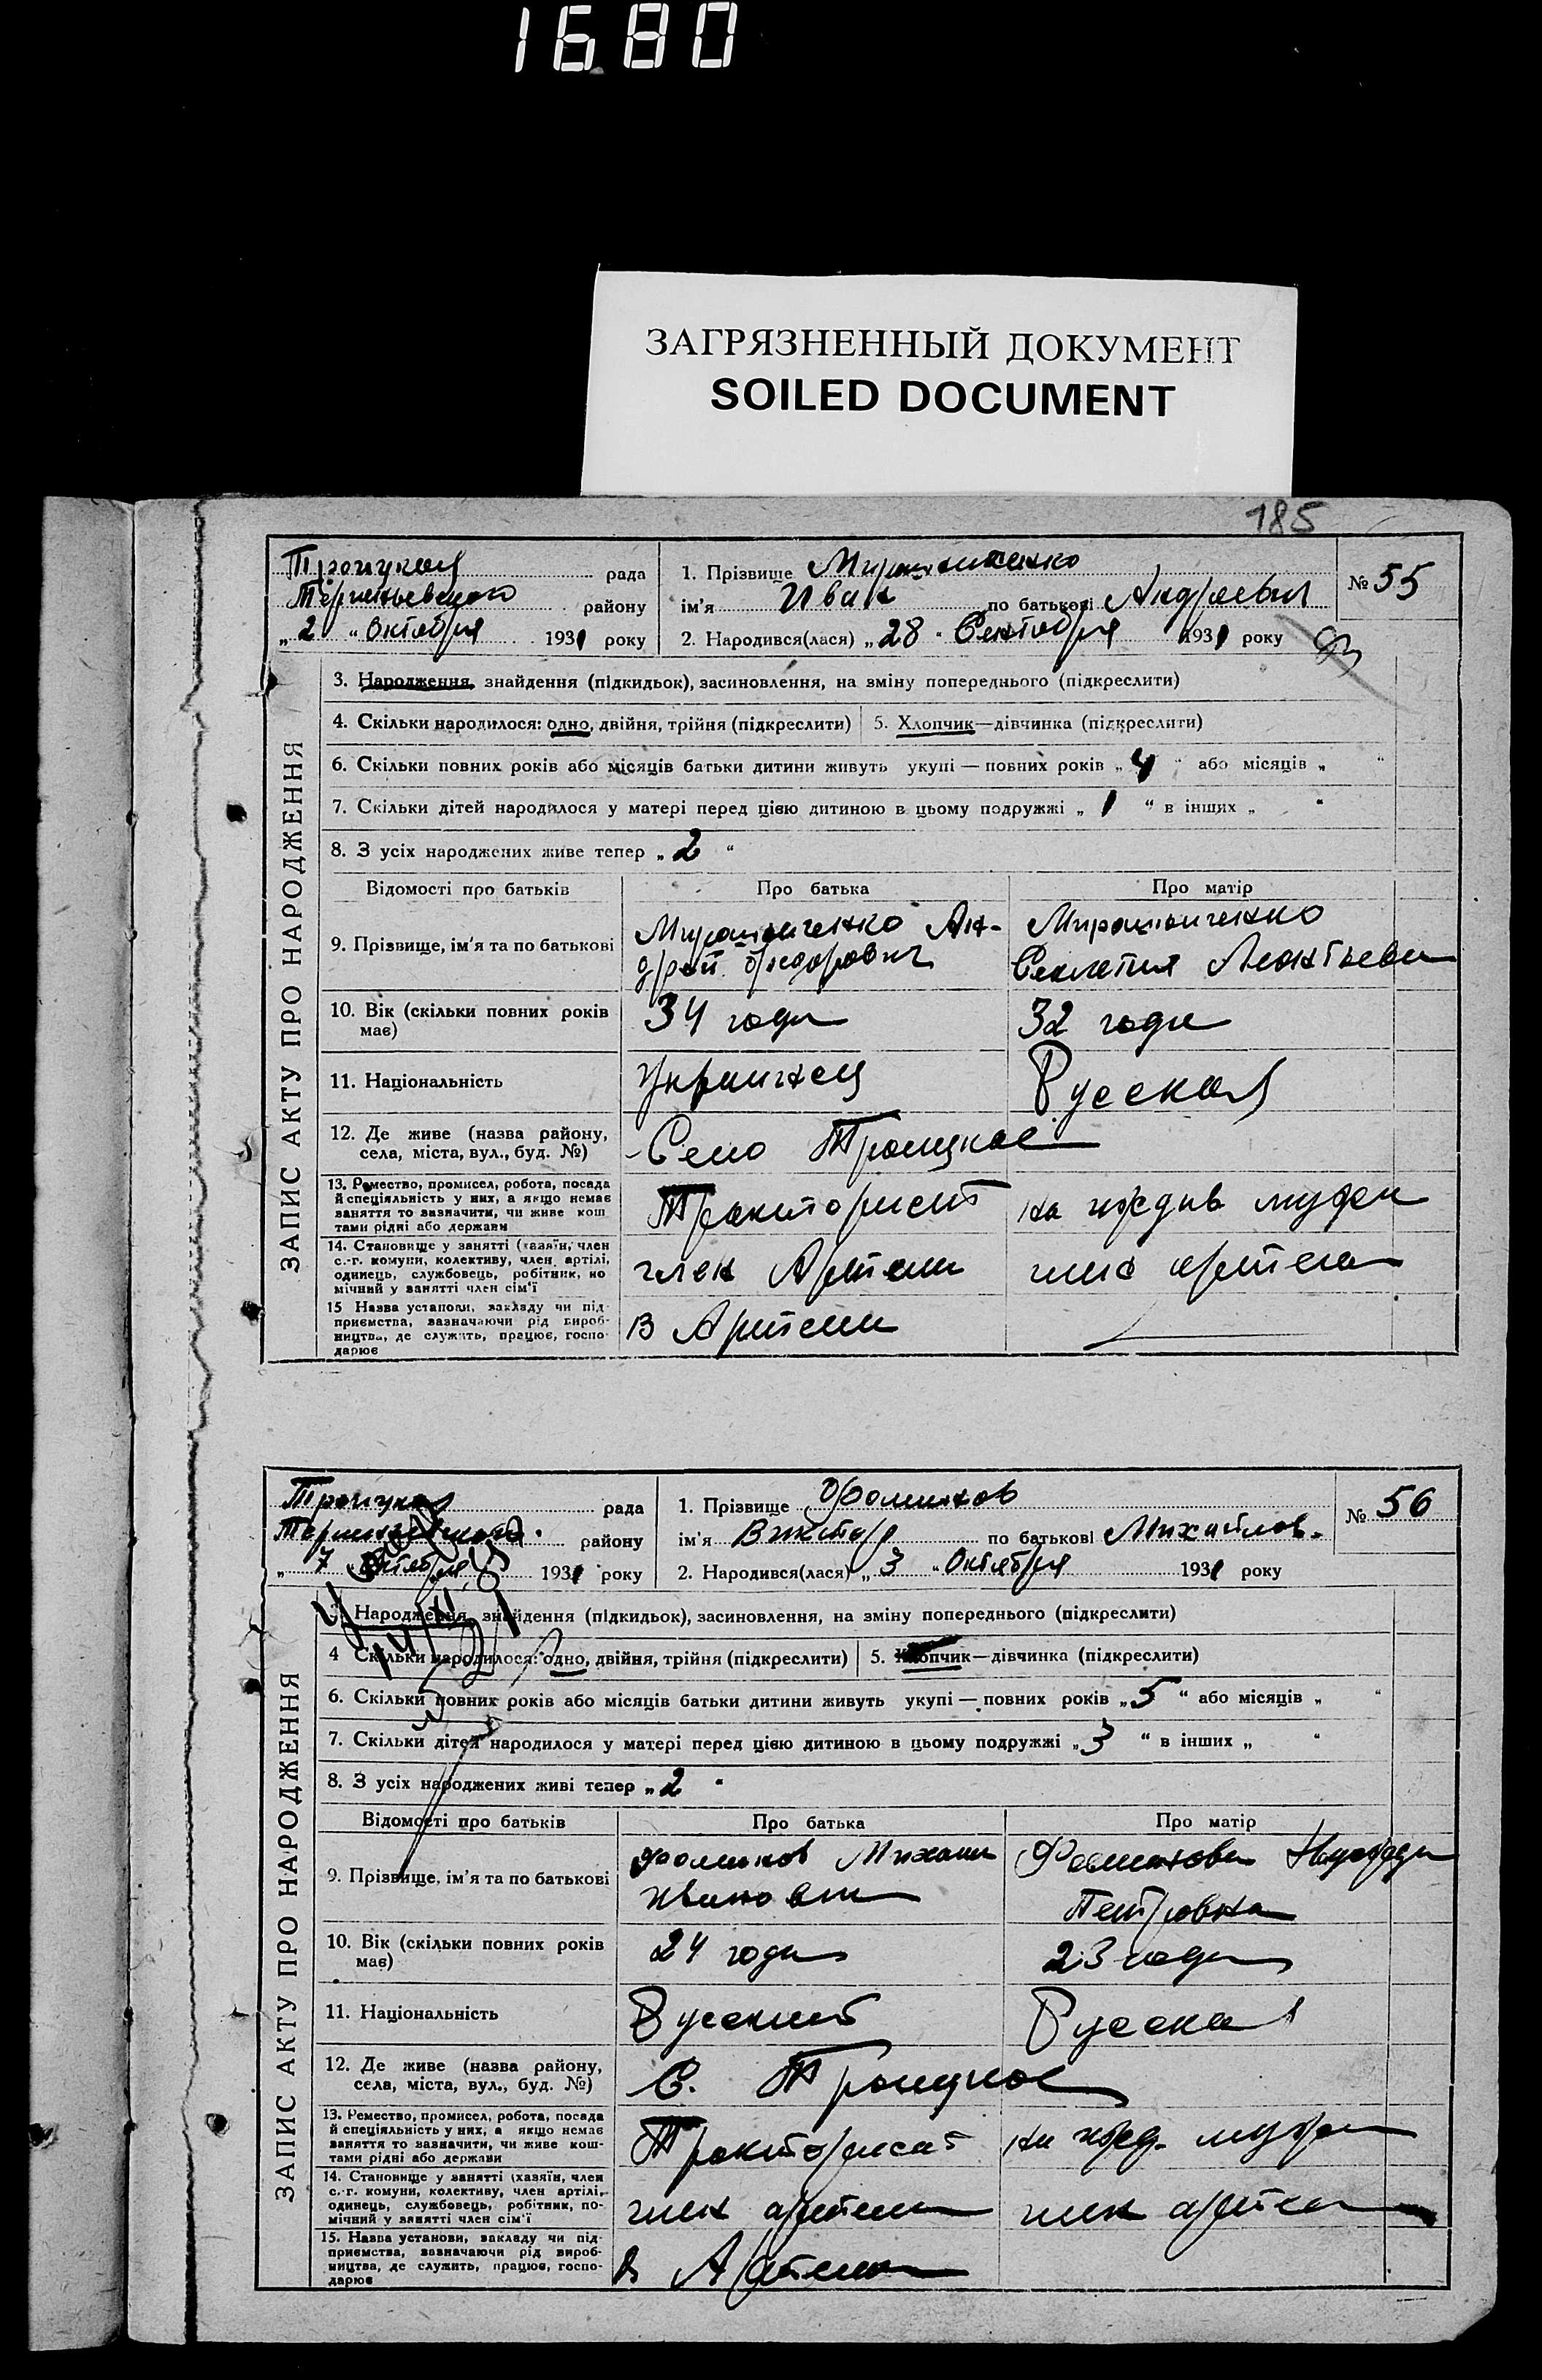 1680
ЗАГРЯЗНЕННЫЙ ДОКУМЕНТ
SOILED DOCUMENT
185
ЗАПИС АКТУ ПРО НАРОДЖЕННЯ
Троицкая рада
району
„2 “ Октября 1931 року
1. Прізвище Мирошниченко
ім'я Иван по батькові Андреевич
2. Народився(лася) „28 “ Сентября 1931 року
№ 55
3. Народження, знайдення (підкидьок), засиновлення, на зміну попереднього (підкреслити)
4. Скільки народилося: одно, двійня, трійня (підкреслити) 5. Хлопчик—дівчинка (підкреслити)
6. Скільки повних років або місяців батьки дитини живуть укупі — повних років „ 4 “ або місяців „ “
7. Скільки дітей народилося у матері перед цією дитиною в цьому подружжі „ 1 “ в інших „ “
8. З усіх народжених живе тепер „ 2 “
Відомості про батьків Про батька Про матір
9. Прізвище, ім'я та по батькові
Мирошниченко Ан-
дрей Федорович
Мирошниченко
Секлетия Леонтьевн
10. Вік (скільки повних років
має)
34 года 32 года
11. Національність Украинец Русская
12. Де живе (назва району,
села, міста, вул., буд. №)
Село Троицкое
13. Ремество, промисел, робота, посада
й спеціяльність у них, а якщо немає
заняття то зазначити, чи живе кош
тами рідні або держави
Тракторист на иждив мужа
14. Становище у занятті (хазяїн, член
с.-г. комуни, колективу, член артілі,
одинець, службовець, робітник, по
мічний у занятті член сім'ї
член Артели член артели
15 Назва установи, закладу чи під
приємства, зазначаючи рід вироб-
ництва, де служить, працює, госпо-
дарює
В Артели
ЗАПИС АКТУ ПРО НАРОДЖЕННЯ
Троицкая рада
району
„ 7 “ Октября 1931 року
1. Прізвище Фоминов
ім'я Виктор по батькові Михайлов.
2. Народився(лася) „ 3 “ Октября 1931 року
№ 56
Народження, знайдення (підкидьок), засиновлення, на зміну попереднього (підкреслити)
4 Скільки народилося: одно, двійня, трійня (підкреслити) 5. Хлопчик—дівчинка (підкреслити)
6. Скільки повних років або місяців батьки дитини живуть укупі — повних років „ 5 “ або місяців „ “
7. Скільки дітей народилося у матері перед цією дитиною в цьому подружжі „ 3 “ в інших „ “
8. З усіх народжених живі тепер „ 2 “
Відомості про батьків Про батька Про матір
9. Прізвище, ім'я та по батькові
Фоминов Михаил
Иванович
Фоминова
Петровна
10. Вік (скільки повних років
має)
24 года 23 года
11. Національність Русский Русская
12. Де живе (назва району,
села, міста, вул., буд. №)
С. Троицкое
13. Ремество, промисел, робота, посада
й спеціяльність у них, а якщо немає
заняття то зазначити, чи живе кош-
тами рідні або держави
Тракторист на ижд. мужа
14. Становище у занятті (хазяїн, член
с.-г. комуни, колективу, член артілі,
одинець, службовець, робітник, по-
мічний у занятті член сім'ї
член артели член артели
15. Назва установи, закладу чи під-
приємства, зазначаючи рід вироб-
ництва, де служить, працює, госпо-
дарює
В Артели